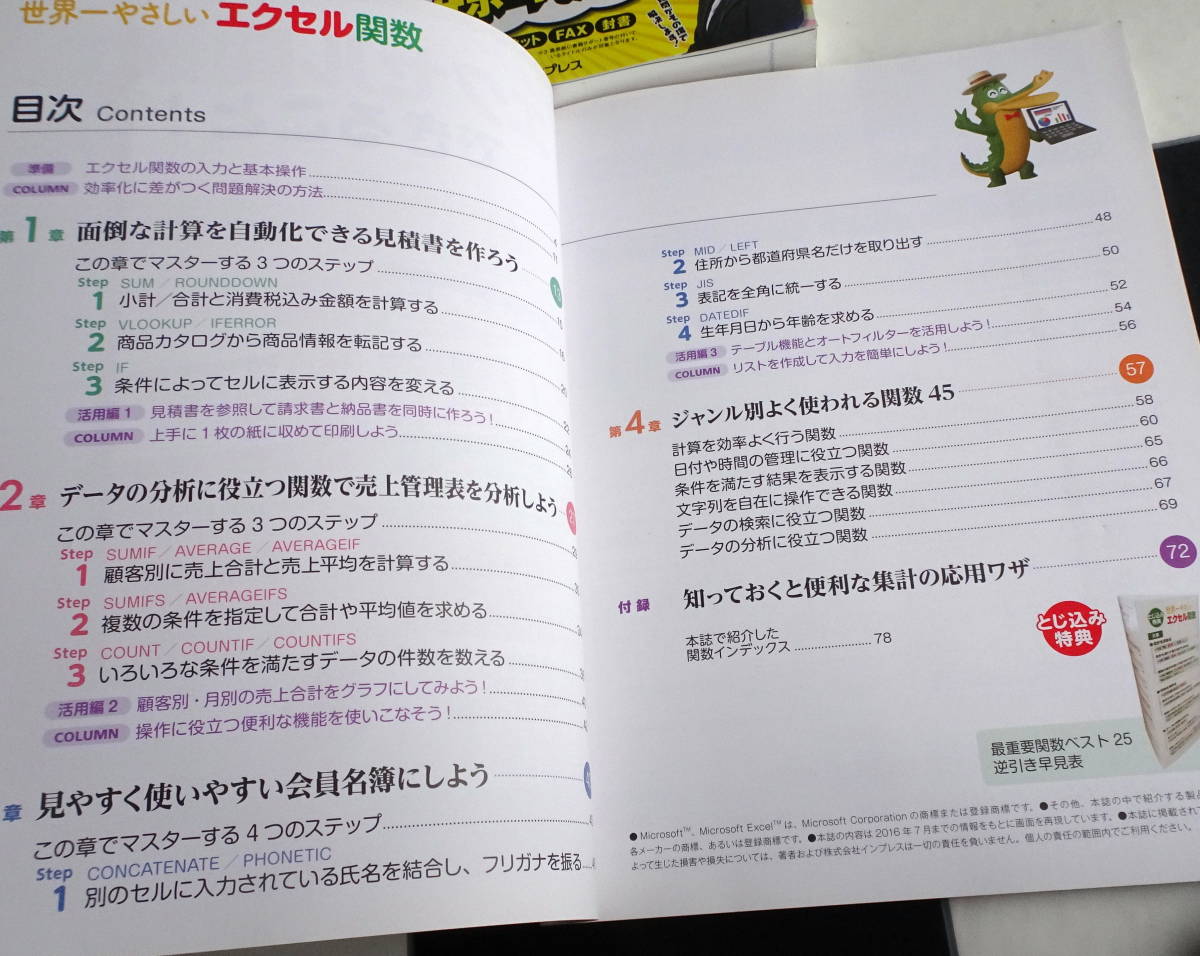 世界一やさしい エクセル関数
ット FAX 封書
プレス
目次 Contents
準備 エクセル関数の入力と基本操作
COLUMN 効率化に差がつく問題解決の方法
第1章 面倒な計算を自動化できる見積書を作ろう
この章でマスターする3つのステップ
Step SUM/ROUNDDOWN
1 小計/合計と消費税込み金額を計算する
Step VLOOKUP/IFERROR
2 商品カタログから商品情報を転記する
Step IF
3 条件によってセルに表示する内容を変える
活用編1 見積書を参照して請求書と納品書を同時に作ろう!
COLUMN 上手に1枚の紙に収めて印刷しよう
2章 データの分析に役立つ関数で売上管理表を分析しよう
この章でマスターする3つのステップ
Step SUMIF/AVERAGE/AVERAGEIF
1 顧客別に売上合計と売上平均を計算する
Step SUMIFS/AVERAGEIFS
2 複数の条件を指定して合計や平均値を求める
Step COUNT/COUNTIF/COUNTIFS
3 いろいろな条件を満たすデータの件数を数える
活用編2 顧客別・月別の売上合計をグラフにしてみよう!
COLUMN 操作に役立つ便利な機能を使いこなそう!
章 見やすく使いやすい会員名簿にしよう
この章でマスターする4つのステップ
Step CONCATENATE/PHONETIC
1 別のセルに入力されている氏名を結合し、フリガナを振る
Step MID/LEFT
2 住所から都道府県名だけを取り出す 48
Step JIS
3 表記を全角に統一する 50
Step DATEDIF
4 生年月日から年齢を求める 52
活用編3 テーブル機能とオートフィルターを活用しよう! 54
COLUMN リストを作成して入力を簡単にしよう! 56
第4章 ジャンル別よく使われる関数45 57
計算を効率よく行う関数 58
日付や時間の管理に役立つ関数 60
条件を満たす結果を表示する関数 65
文字列を自在に操作できる関数 66
データの検索に役立つ関数 67
データの分析に役立つ関数 69
付録 知っておくと便利な集計の応用ワザ 72
本誌で紹介した
関数インデックス 78
とじ込み
特典
世界一やさしい
エクセル関数
最重要関数ベスト25
逆引き早見表
●Microsoft™、Microsoft Excel™は、Microsoft Corporationの商標または登録商標です。●その他、本誌の中で紹介する製品
各メーカーの商標、あるいは登録商標です。●本誌の内容は2016年7月までの情報をもとに画面を再現しています。●本誌に掲載されて
よって生じた損害や損失については、著者および株式会社インプレスは一切の責任を負いません。個人の責任の範囲内でご利用ください。